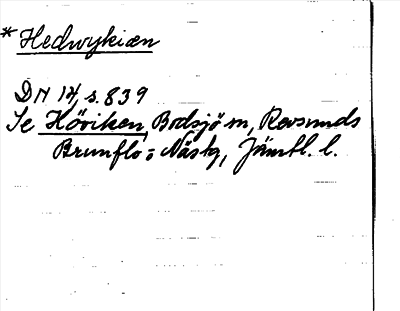 * Hedwykiæn
DN 14, s. 839
Se Höviken, Bodsjö sn, Revsunds
Brunflo o Näs tg, Jämtl. l.